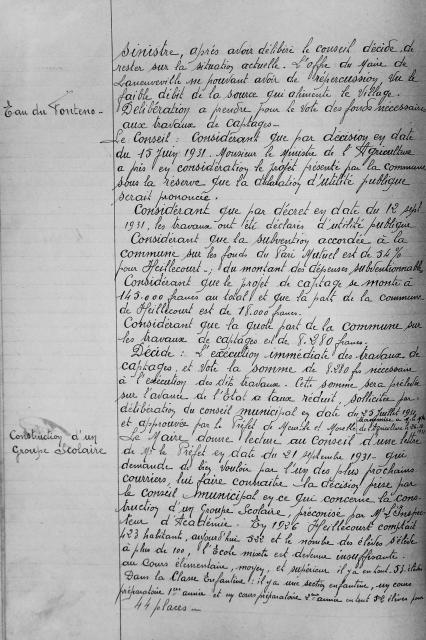 sinistre, après avoir délibéré le conseil décide de
rester sur la situation actuelle. L'offre du Maire de
Laneuveville ne pouvant avoir de répercussion, vu le
faible débit de la source qui alimente le village.
Eau du Fonteno -
Délibération a prendre pour le vote des fonds nécessaire
aux travaux de captages -
Le Conseil : Considérant que par décision en date
du 15 juin 1931. Monsieur le Ministre de l'Agriculture
a pris en considération le projet présenté par la commune
sous la réserve que la déclaration d'utilité publique
serait prononcée.
Considérant que par décret en date du 12 sept
1931, les travaux ont été déclarés d'utilité publique
Considérant que la subvention accordée à la
commune sur les fonds du Pari Mutuel est de 54%
pour Heillecourt -, du montant des dépenses subventionnable
Considérant que le projet de captage se monte à
145.000 francs au total et que la part de la commune
de Heillecourt est de 18.000 francs.
Considérant que la quote part de la commune sur
les travaux de captages est de 8.280 francs.
Décide : L'exécution immédiate des travaux de
captages, et vote la somme de 8.280 frs nécessaire
à l'exécution des dits travaux. Cette somme sera prélevée
sur l'avance de l'État a taux réduit, sollicitée par
délibération du conseil municipal en date du 25 juillet 1931
et approuvée par le Préfet de Meurthe et Moselle,
Construction d'un
Groupe Scolaire
Le Maire, donne lecture au Conseil d'une lettre
de Mr le Préfet en date du 21 septembre 1931 - qui
demande de bien vouloir par l'un des plus prochains
courriers, lui faire connaître la décision prise par
le conseil municipal en ce qui concerne la cons-
truction d'un Groupe Scolaire, préconisé par Mr L'Inspec-
teur d'Académie. En 1926 Heillecourt comptait
423 habitants, aujourd'hui 522 et le nombre des élèves s'élève
à plus de 100, l'École mixte est devenue insuffisante.
au cours élémentaire, moyen, et supérieur il y a en tout 53 élèves
Dans la Classe Enfantine : il y a une section enfantine, un cours
préparatoire 1ère année et un cours préparatoire 2ème année en tout élèves pour
44 places -